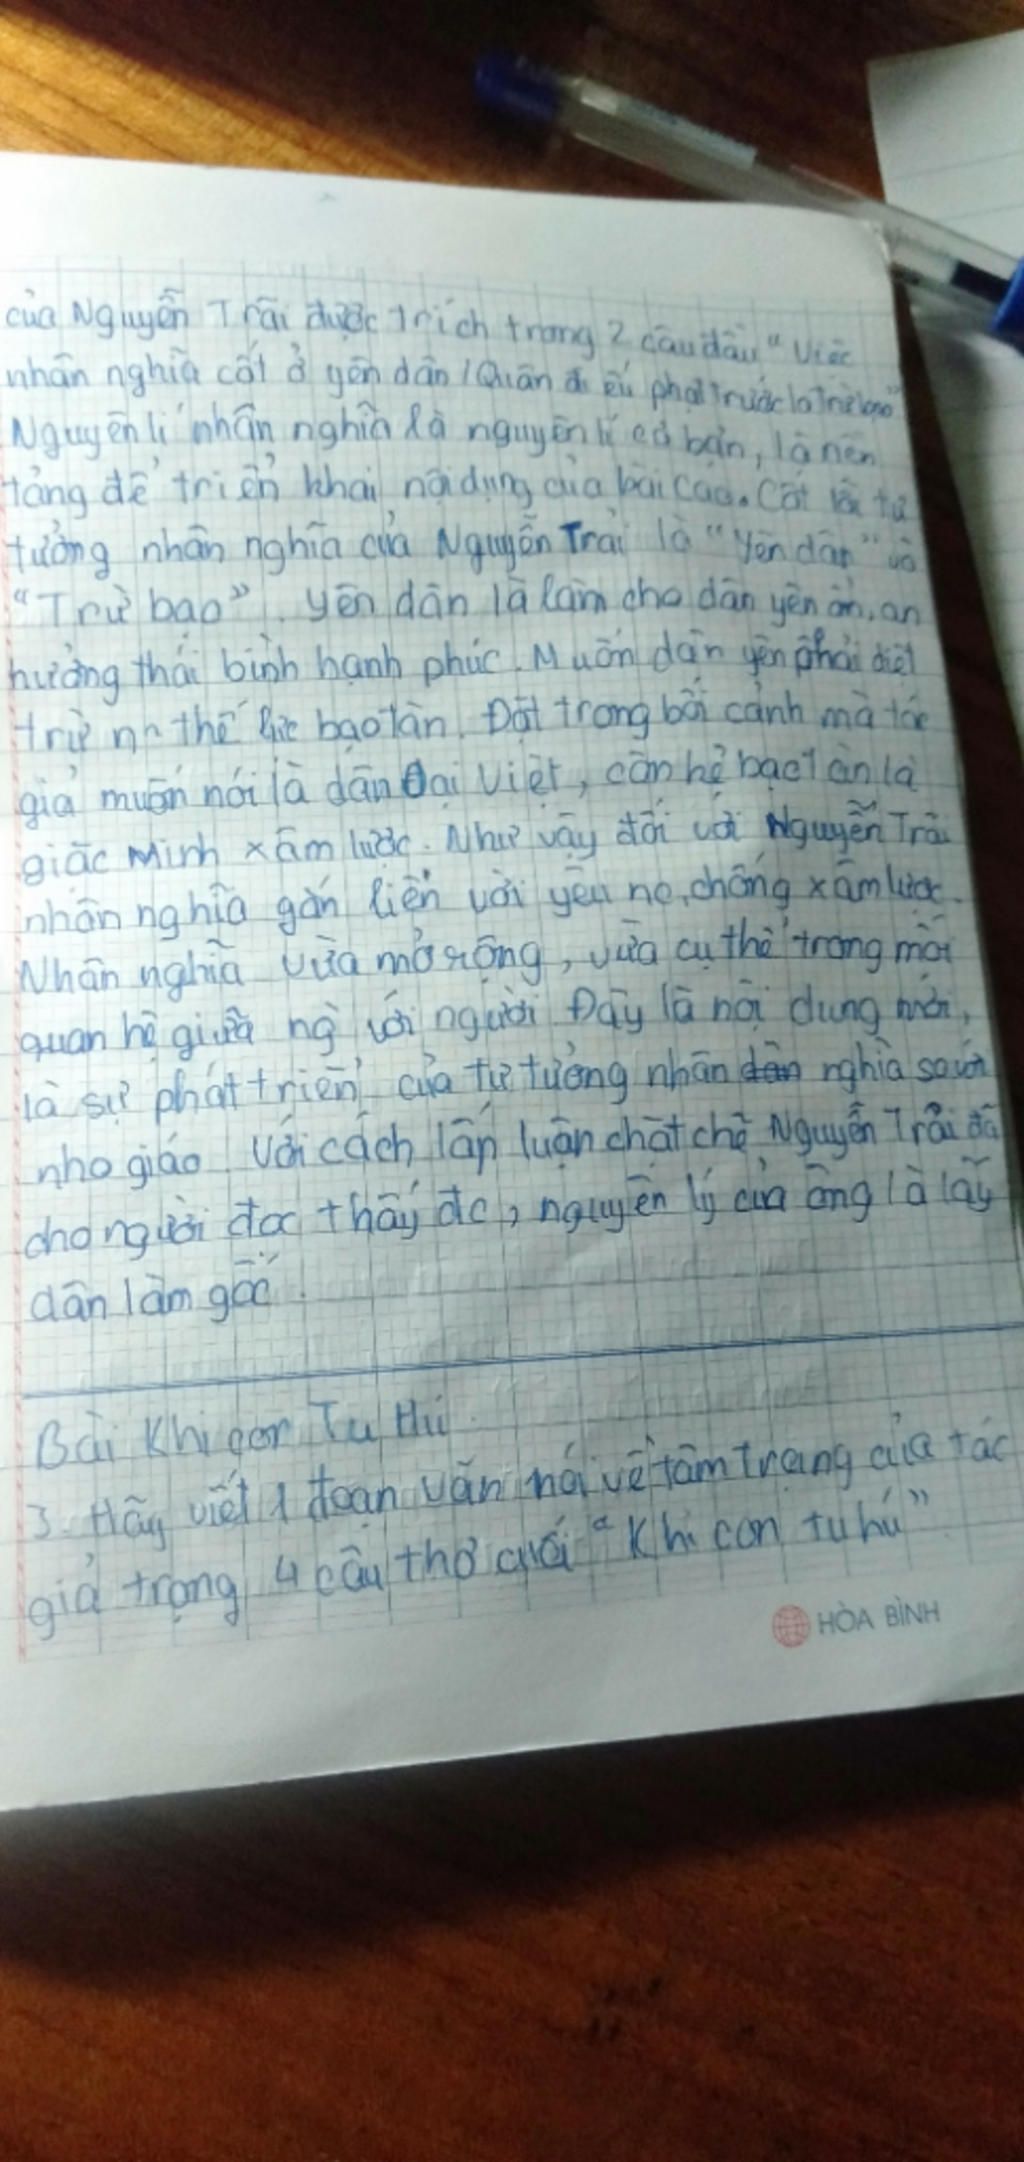 của Nguyễn Trãi được trích trong 2 câu đầu "Việc
nhân nghĩa cốt ở yên dân / Quân điếu phạt trước lo trừ bạo"
Nguyên lí nhân nghĩa là nguyên lí cơ bản, là nền
tảng để triển khai nội dung của bài cáo. Cốt lõi tư
tưởng nhân nghĩa của Nguyễn Trãi là "Yên dân" và
"Trừ bạo". Yên dân là làm cho dân yên ổn, an
hưởng thái bình hạnh phúc. Muốn dân yên phải diệt
trừ thế lực bạo tàn. Đặt trong bối cảnh mà tác
giả muốn nói là dân Đại Việt, còn kẻ bạo tàn là
giặc Minh xâm lược. Như vậy đối với Nguyễn Trãi
nhân nghĩa gắn liền với yêu nc, chống xâm lược.
Nhân nghĩa vừa mở rộng, vừa cụ thể trong mối
quan hệ giữa ng với người Đây là nội dung mới,
là sự phát triển của tư tưởng nhân nghĩa so với
nho giáo Với cách lập luận chặt chẽ Nguyễn Trãi đã
cho người đọc thấy đc, nguyên lý của ông là lấy
dân làm gốc.
Bài Khi con Tu Hú.
3. Hãy viết 1 đoạn văn nói về tâm trạng của tác
giả trong 4 câu thơ cuối "Khi con tu hú"
HÒA BÌNH